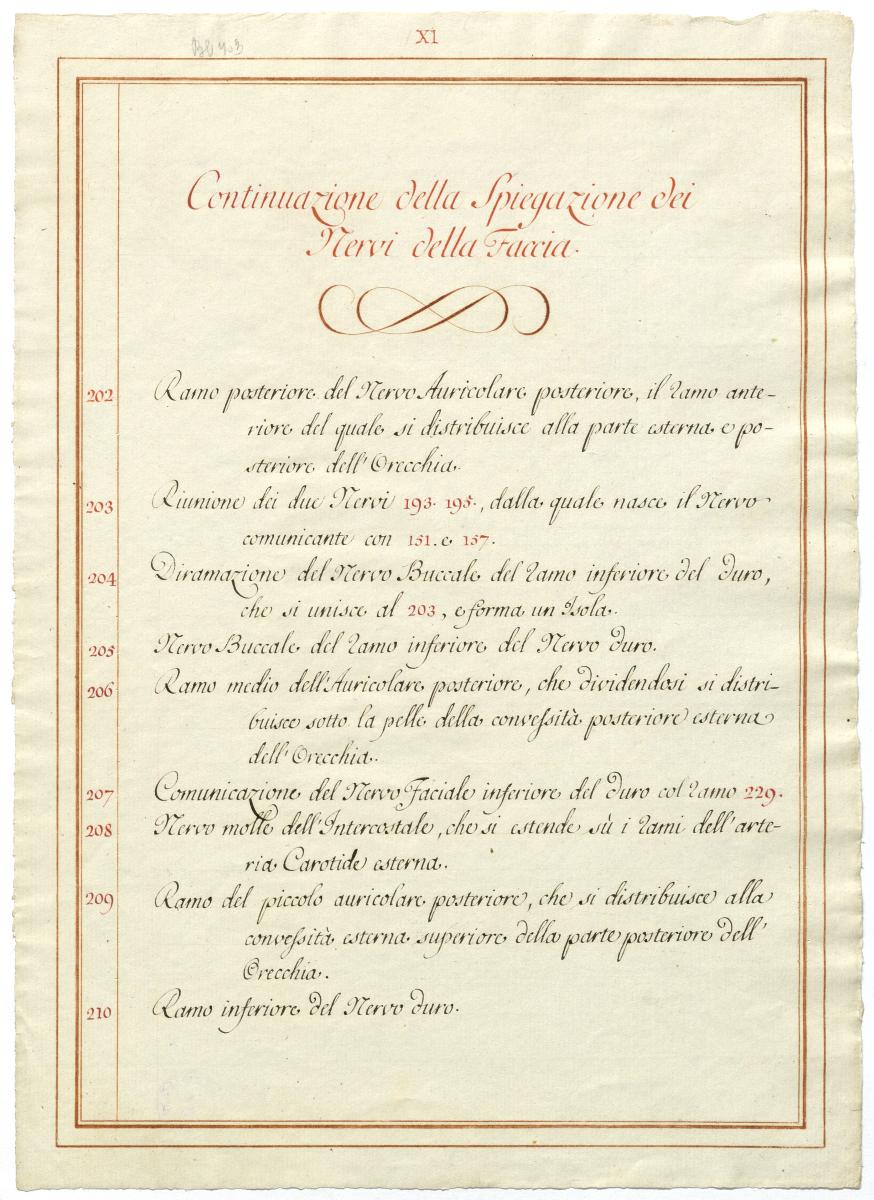 XI
Continuazione della Spiegazione dei
Nervi della Faccia.
202 Ramo posteriore del Nervo Auricolare posteriore, il ramo ante-
riore del quale si distribuisce alla parte esterna e po-
steriore dell'Orecchia.
203 Riunione dei due Nervi 193. 195., dalla quale nasce il Nervo
comunicante con 151. e 157.
204 Diramazione del Nervo Buccale del ramo inferiore del duro,
che si unisce al 203, e forma un Isola.
205 Nervo Buccale del ramo inferiore del Nervo duro.
206 Ramo medio dell'Auricolare posteriore, che dividendosi si distri-
buisce sotto la pelle della conveſsità posteriore esterna
dell'Orecchia.
207 Comunicazione del Nervo Faciale inferiore del duro col ramo 229.
208 Nervo molle dell'Intercostale, che si estende sù i rami dell'arte-
ria Carotide esterna.
209 Ramo del piccolo auricolare posteriore, che si distribuisce alla
conveſsità esterna superiore della parte posteriore dell'
Orecchia.
210 Ramo inferiore del Nervo duro.